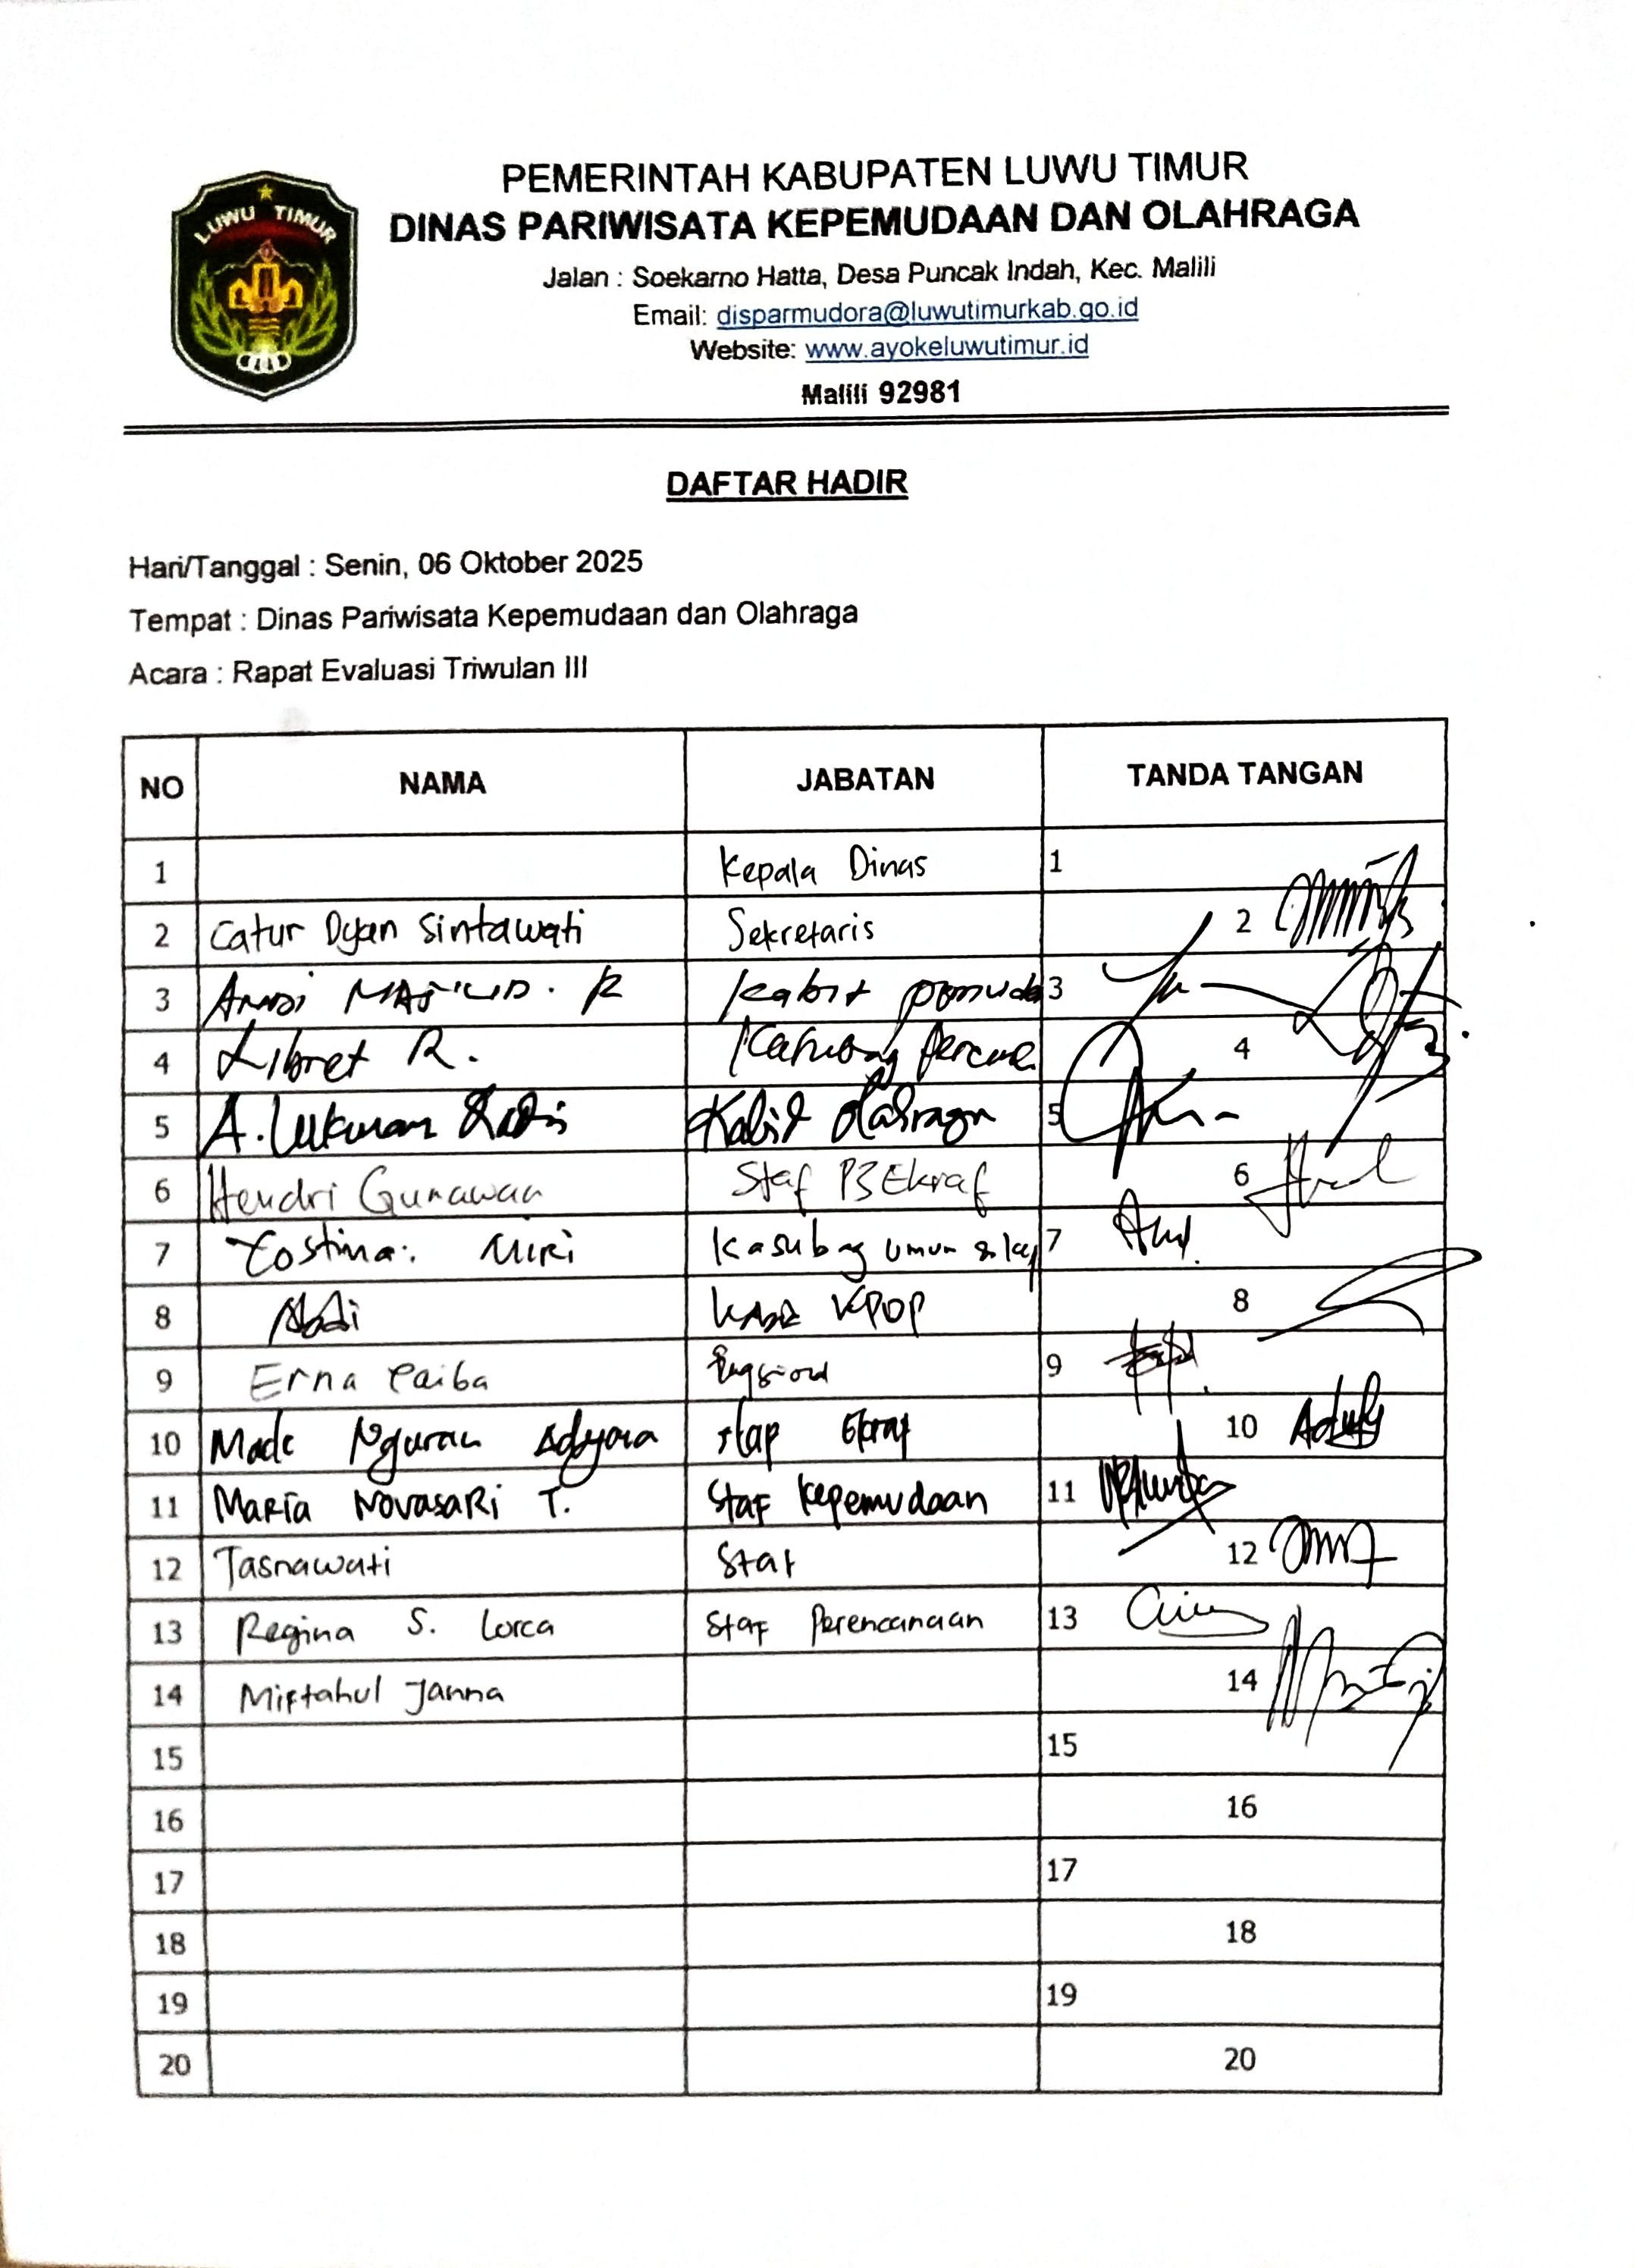 LUWU TIMUR
PEMERINTAH KABUPATEN LUWU TIMUR
DINAS PARIWISATA KEPEMUDAAN DAN OLAHRAGA
Jalan : Soekarno Hatta, Desa Puncak Indah, Kec. Malili
Email: disparmudora@luwutimurkab.go.id
Website: www.ayokeluwutimur.id
Malili 92981
DAFTAR HADIR
Hari/Tanggal : Senin, 06 Oktober 2025
Tempat : Dinas Pariwisata Kepemudaan dan Olahraga
Acara : Rapat Evaluasi Triwulan III
NO NAMA JABATAN TANDA TANGAN
1 Kepala Dinas 1
2 Catur Dyan Sintawati Sekretaris 2
3 R Kabid 3
4 Libret R. 4
5 A. Lukman Kabid Olahraga 5
6 Hendri Gunawan Staf P3Ekraf 6
7 Yostina Kasubag umum & kep 7
8 KPOP 8
9 Erna 9
10 Made Nguran Adyana stap Ekraf 10
11 Maria Novasari T. Staf Kepemudaan 11
12 Tasnawati Staf 12
13 Regina S. Lorca Staf Perencanaan 13
14 Miftahul Janna 14
15 15
16 16
17 17
18 18
19 19
20 20